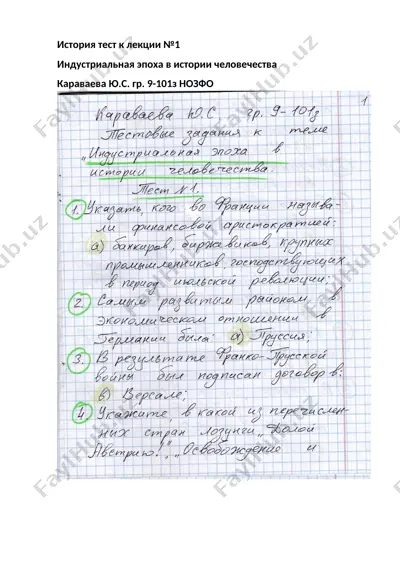 История тест к лекции №1
Индустриальная эпоха в истории человечества
Караваева Ю.С. гр. 9-101з НОЗФО
1
Караваева Ю.С. гр. 9-101з
Тестовые задания к теме
„Индустриальная эпоха в
истории человечества.
Тест №1.
1. Указать, кого во Франции называ-
ли финансовой аристократией:
а) банкиров, биржевиков, крупных
промышленников, господствующих
в период июльской революции;
2. Самым развитым районом в
экономическом отношении в
Германии была: а) Пруссия;
3. В результате Франко-Прусской
войны был подписан договор в:
в) Версале;
4. Укажите, в какой из перечислен-
ных стран лозунги „Долой
Австрию!", „Освобождение и
FaylHub.uz